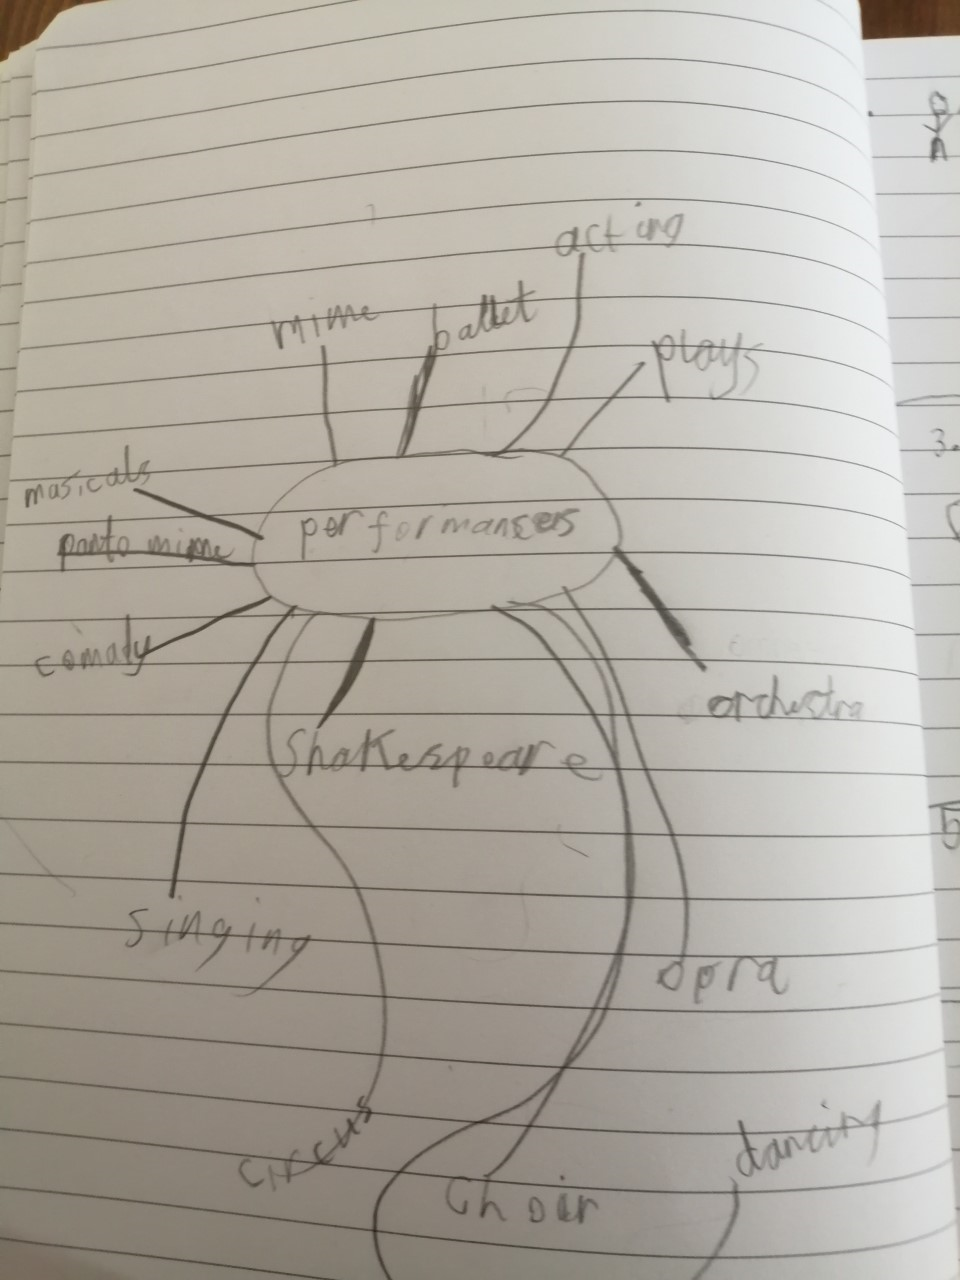 acting
mime
ballet
plays
masicals
performansers
panto mime
comady
orchestra
Shakespeare
singing
opra
circus
choir
dancing
3.
5